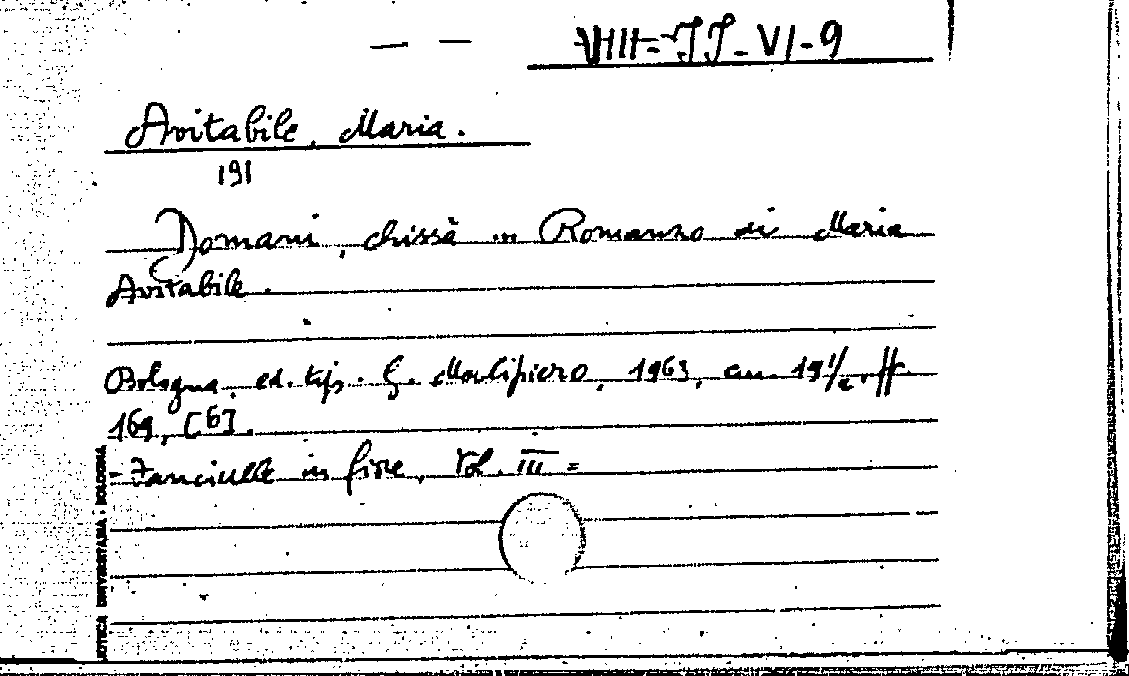 VIII = JJ - VI - 9
Avitabile, Maria.
191
Domani, chissà ... Romanzo di Maria
Avitabile.
Bologna, ed. tip. G. Malipiero, 1963, cm. 19½, pp.
169, [6].
- Fanciulle in fiore, Vol. III =
UNIVERSITARIA - BOLOGNA